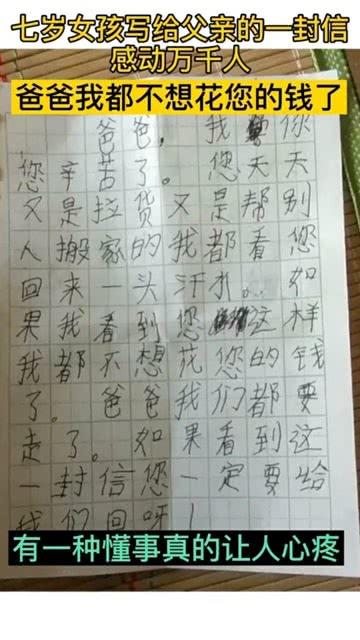 七岁女孩写给父亲的一封信
感动万千人
爸爸我都不想花您的钱了
爸爸,我你
您辛苦了。您天天
又是拉货又是帮别
人搬家的我都看您
回来一头汗水。如
果我看到您这样
我都不想花您的钱
了。爸爸我们都要
走了。如果看到这
一封信您一定要给
我们回呀!
有一种懂事真的让人心疼